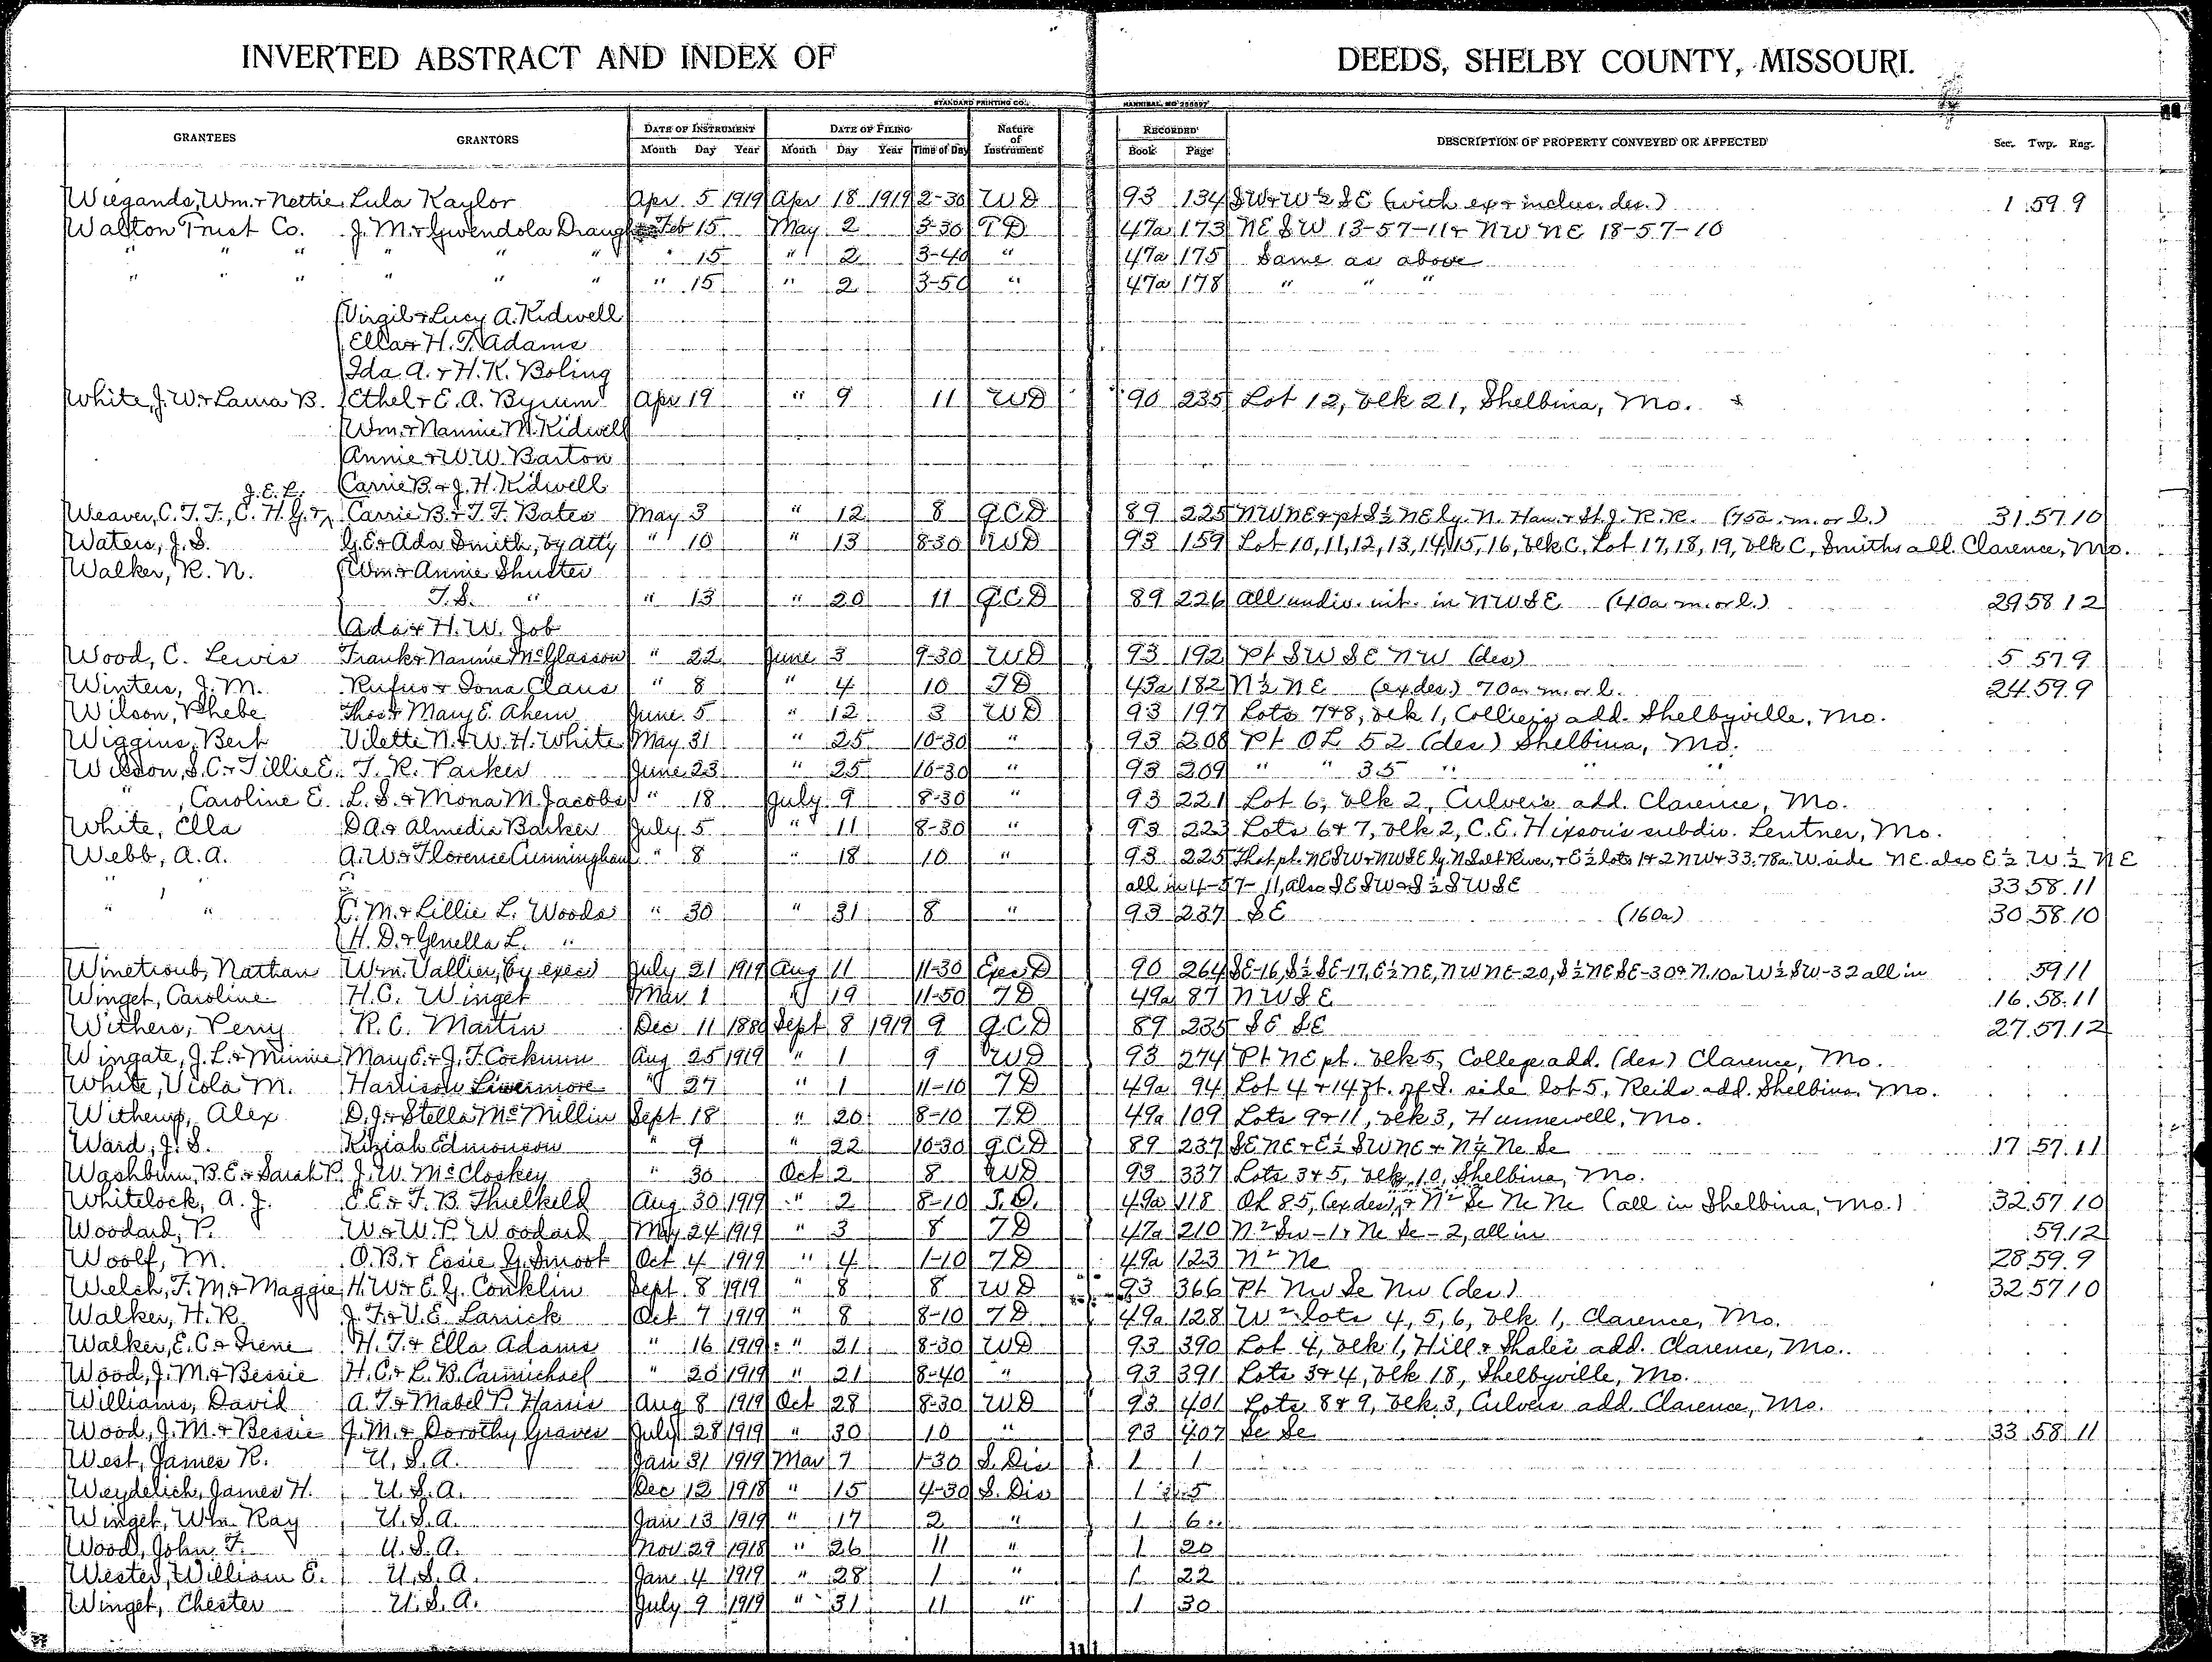 INVERTED ABSTRACT AND INDEX OF DEEDS, SHELBY COUNTY, MISSOURI.
STANDARD PRINTING CO., HANNIBAL, MO
GRANTEES GRANTORS DATE OF INSTRUMENT DATE OF FILING Nature of Instrument RECORDED DESCRIPTION OF PROPERTY CONVEYED OR AFFECTED Sec. Twp. Rng.
Month Day Year Month Day Year Time of Day Book Page
Wiegands, Wm. + Nettie Lula Kaylor Apr 5 1919 Apr 18 1919 2-30 WD 93 134 SW + W ½ SE (with ex + inclus. des.) 1 59 9
Walton Trust Co. J. M. + Gwendola Feb 15 May 2 3-30 TD 47a 173 NE SW 13-57-11 + NW NE 18-57-10
" " " " " " " 15 " 2 3-40 " 47a 175 Same as above
" " " " " " " 15 " 2 3-50 " 47a 178 " " "
Virgil + Lucy A. Kidwell
Ella + H. T. Adams
Ida A. + H. K. Boling
White, J. W. + Laura B. Ethel + E. A. Byrum Apr 19 " 9 11 WD 90 235 Lot 12, Blk 21, Shelbina, Mo.
Wm. + Nannie M. Kidwell
Annie + W. W. Barton
Carrie B. + J. H. Kidwell
J. E. L.
Weaver, C. T. F., C. H. G. + Carrie B. + T. F. Bates May 3 " 12 8 QCD 89 225 NW NE + pt S ½ NE ly. N. Han. + St. J. R. R. (75a. m. or l.) 31 57 10
Waters, J. S. G. E. + Ada Smith, by atty " 10 " 13 8-30 WD 93 159 Lot 10, 11, 12, 13, 14, 15, 16, Blk C, Lot 17, 18, 19, Blk C, Smiths add. Clarence, Mo.
Walker, R. N. Wm. + Annie Shuster
T. S. " " 13 " 20 11 QCD 89 226 All undiv. int. in NW SE (40a m. or l.) 29 58 12
Ada + H. W. Job
Wood, C. Lewis Frank + Nannie McGlasson " 22 June 3 9-30 WD 93 192 Pt SW SE NW (des) 5 57 9
Winters, J. M. Rufus + Iona Claus " 8 " 4 10 TD 43a 182 N ½ NE (ex des.) 70a. m. or l. 24 59 9
Wilson, Phebe Thos + Mary E. Ahern June 5 " 12 3 WD 93 197 Lots 7+8, Blk 1, Colliers add. Shelbyville, Mo.
Wiggins, Bert Vilette N. + W. H. White May 31 " 25 10-30 " 93 208 Pt OL 52 (des) Shelbina, Mo.
Wilson, S. C. + Tillie E. T. R. Parker June 23 " 25 10-30 " 93 209 " " 35 " " "
" , Caroline E. L. S. + Mona M. Jacobs " 18 July 9 8-30 " 93 221 Lot 6, Blk 2, Culver's add. Clarence, Mo.
White, Ella D A. + Almedia Barker July 5 " 11 8-30 " 93 223 Lots 6+7, Blk 2, C. E. Hixson's subdiv. Lentner, Mo.
Webb, A. A. A. W. + Florence Cunningham " 8 " 18 10 " 93 225 That pt. NE SW + NW SE ly. N Salt River, + E ½ lots 1+2 NW + 33.78a. W. side NE. also E ½ W ½ NE
all in 4-57-11, also SE SW + S ½ SW SE 33 58 11
" " C. M. + Lillie L. Woods " 30 " 31 8 " 93 237 SE (160a) 30 58 10
H. D. + Genella L. "
Winetroub, Nathan Wm. Vallier, by exec July 21 1919 Aug 11 11-30 Exec D 90 264 SE-16, S ½ SE-17, E ½ NE, NW NE-20, S ½ NE SE-30 + N. 10a W ½ SW-32 all in 59 11
Winget, Caroline H. C. Winget Mar 1 " 19 11-50 TD 49a 87 NW SE 16 58 11
Withers, Perry R. C. Martin Dec 11 1889 Sept 8 1919 9 QCD 89 235 SE SE 27 57 12
Wingate, J. L. + Minnie Mary E. + J. T. Cockrum Aug 25 1919 " 1 9 WD 93 274 Pt NE pt. Blk 5, College add. (des) Clarence, Mo.
White, Viola M. Harrison Livermore " 27 " 1 11-10 TD 49a 94 Lot 4 + 14 ft. off S. side lot 5, Reids add. Shelbina, Mo.
Witherup, Alex D. J. + Stella McMillin Sept 18 " 20 8-10 TD 49a 109 Lots 9+11, Blk 3, Hunnewell, Mo.
Ward, J. S. Kiziah Edmonson " 9 " 22 10-30 QCD 89 237 SE NE + E ½ SW NE + N ½ Ne Se 17 57 11
Washburn, B. E. + Sarah P. J. W. McCloskey " 30 Oct 2 8 WD 93 337 Lots 3+5, Blk 10, Shelbina, Mo.
Whitelock, A. J. E. E. + F. B. Thielkeld Aug 30 1919 " 2 8-10 T. D. 49a 118 Ol 85, (ex des), + N 2 Se Ne Ne (all in Shelbina, Mo.) 32 57 10
Woodard, P. W. + W. P. Woodard May 24 1919 " 3 8 TD 47a 210 N 2 Sw-1 + Ne Se-2, all in 59 12
Woolf, M. O. B. + Essie G. Smoot Oct 4 1919 " 4 1-10 TD 49a 123 N 2 Ne 28 59 9
Welch, F. M. + Maggie H. W. + E. G. Conklin Sept 8 1919 " 8 8 WD 93 366 Pt Nw Se Nw (des) 32 57 10
Walker, H. R. J. F. + V. E. Larrick Oct 7 1919 " 8 8-10 TD 49a 128 W 2 lots 4, 5, 6, Blk 1, Clarence, Mo.
Walker, E. C. + Irene H. T. + Ella Adams " 16 1919 " 21 8-30 WD 93 390 Lot 4, Blk 1, Hill + Shales add. Clarence, Mo.
Wood, J. M. + Bessie H. C. + L. B. Carmichael " 20 1919 " 21 8-40 " 93 391 Lots 3+4, Blk 18, Shelbyville, Mo.
Williams, David A. T. + Mabel P. Harris Aug 8 1919 Oct 28 8-30 WD 93 401 Lots 8+9, Blk 3, Culvers add. Clarence, Mo.
Wood, J. M. + Bessie J. M. + Dorothy Graves July 28 1919 " 30 10 " 93 407 Se Se 33 58 11
West, James R. U. S. A. Jan 31 1919 Mar 7 1-30 S. Dis 1 1
Weydelich, James H. U. S. A. Dec 12 1918 " 15 4-30 S. Dis 1 5
Winget, Wm. Ray U. S. A. Jan 13 1919 " 17 2 " 1 6
Wood, John F. U. S. A. Nov 29 1918 " 26 11 " 1 20
Wester, William E. U. S. A. Jan 4 1919 " 28 1 " 1 22
Winget, Chester U. S. A. July 9 1919 " 31 11 " 1 30